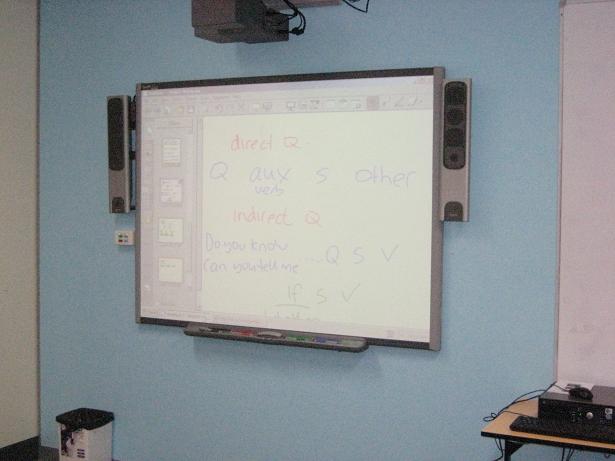 direct Q.
Q aux s other
verb
indirect Q
Do you know
Can you tell me ... Q S V
If S V